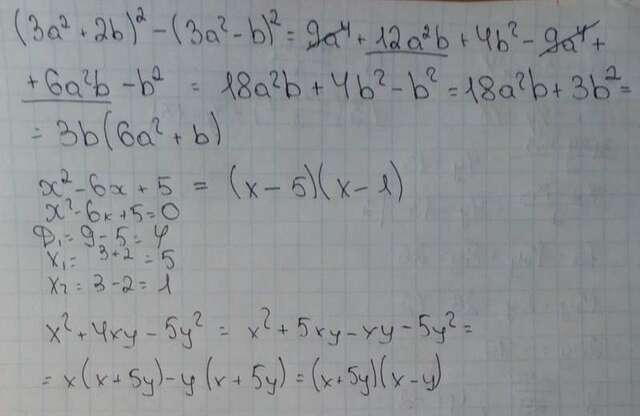 (3a² + 2b)² - (3a² - b)² = 9a⁴ + 12a²b + 4b² - 9a⁴ +
+ 6a²b - b² = 18a²b + 4b² - b² = 18a²b + 3b² =
= 3b(6a² + b)
x² - 6x + 5 = (x - 5)(x - 1)
x² - 6x + 5 = 0
D₁ = 9 - 5 = 4
x₁ = 3 + 2 = 5
x₂ = 3 - 2 = 1
x² + 4xy - 5y² = x² + 5xy - xy - 5y² =
= x(x + 5y) - y(x + 5y) = (x + 5y)(x - y)